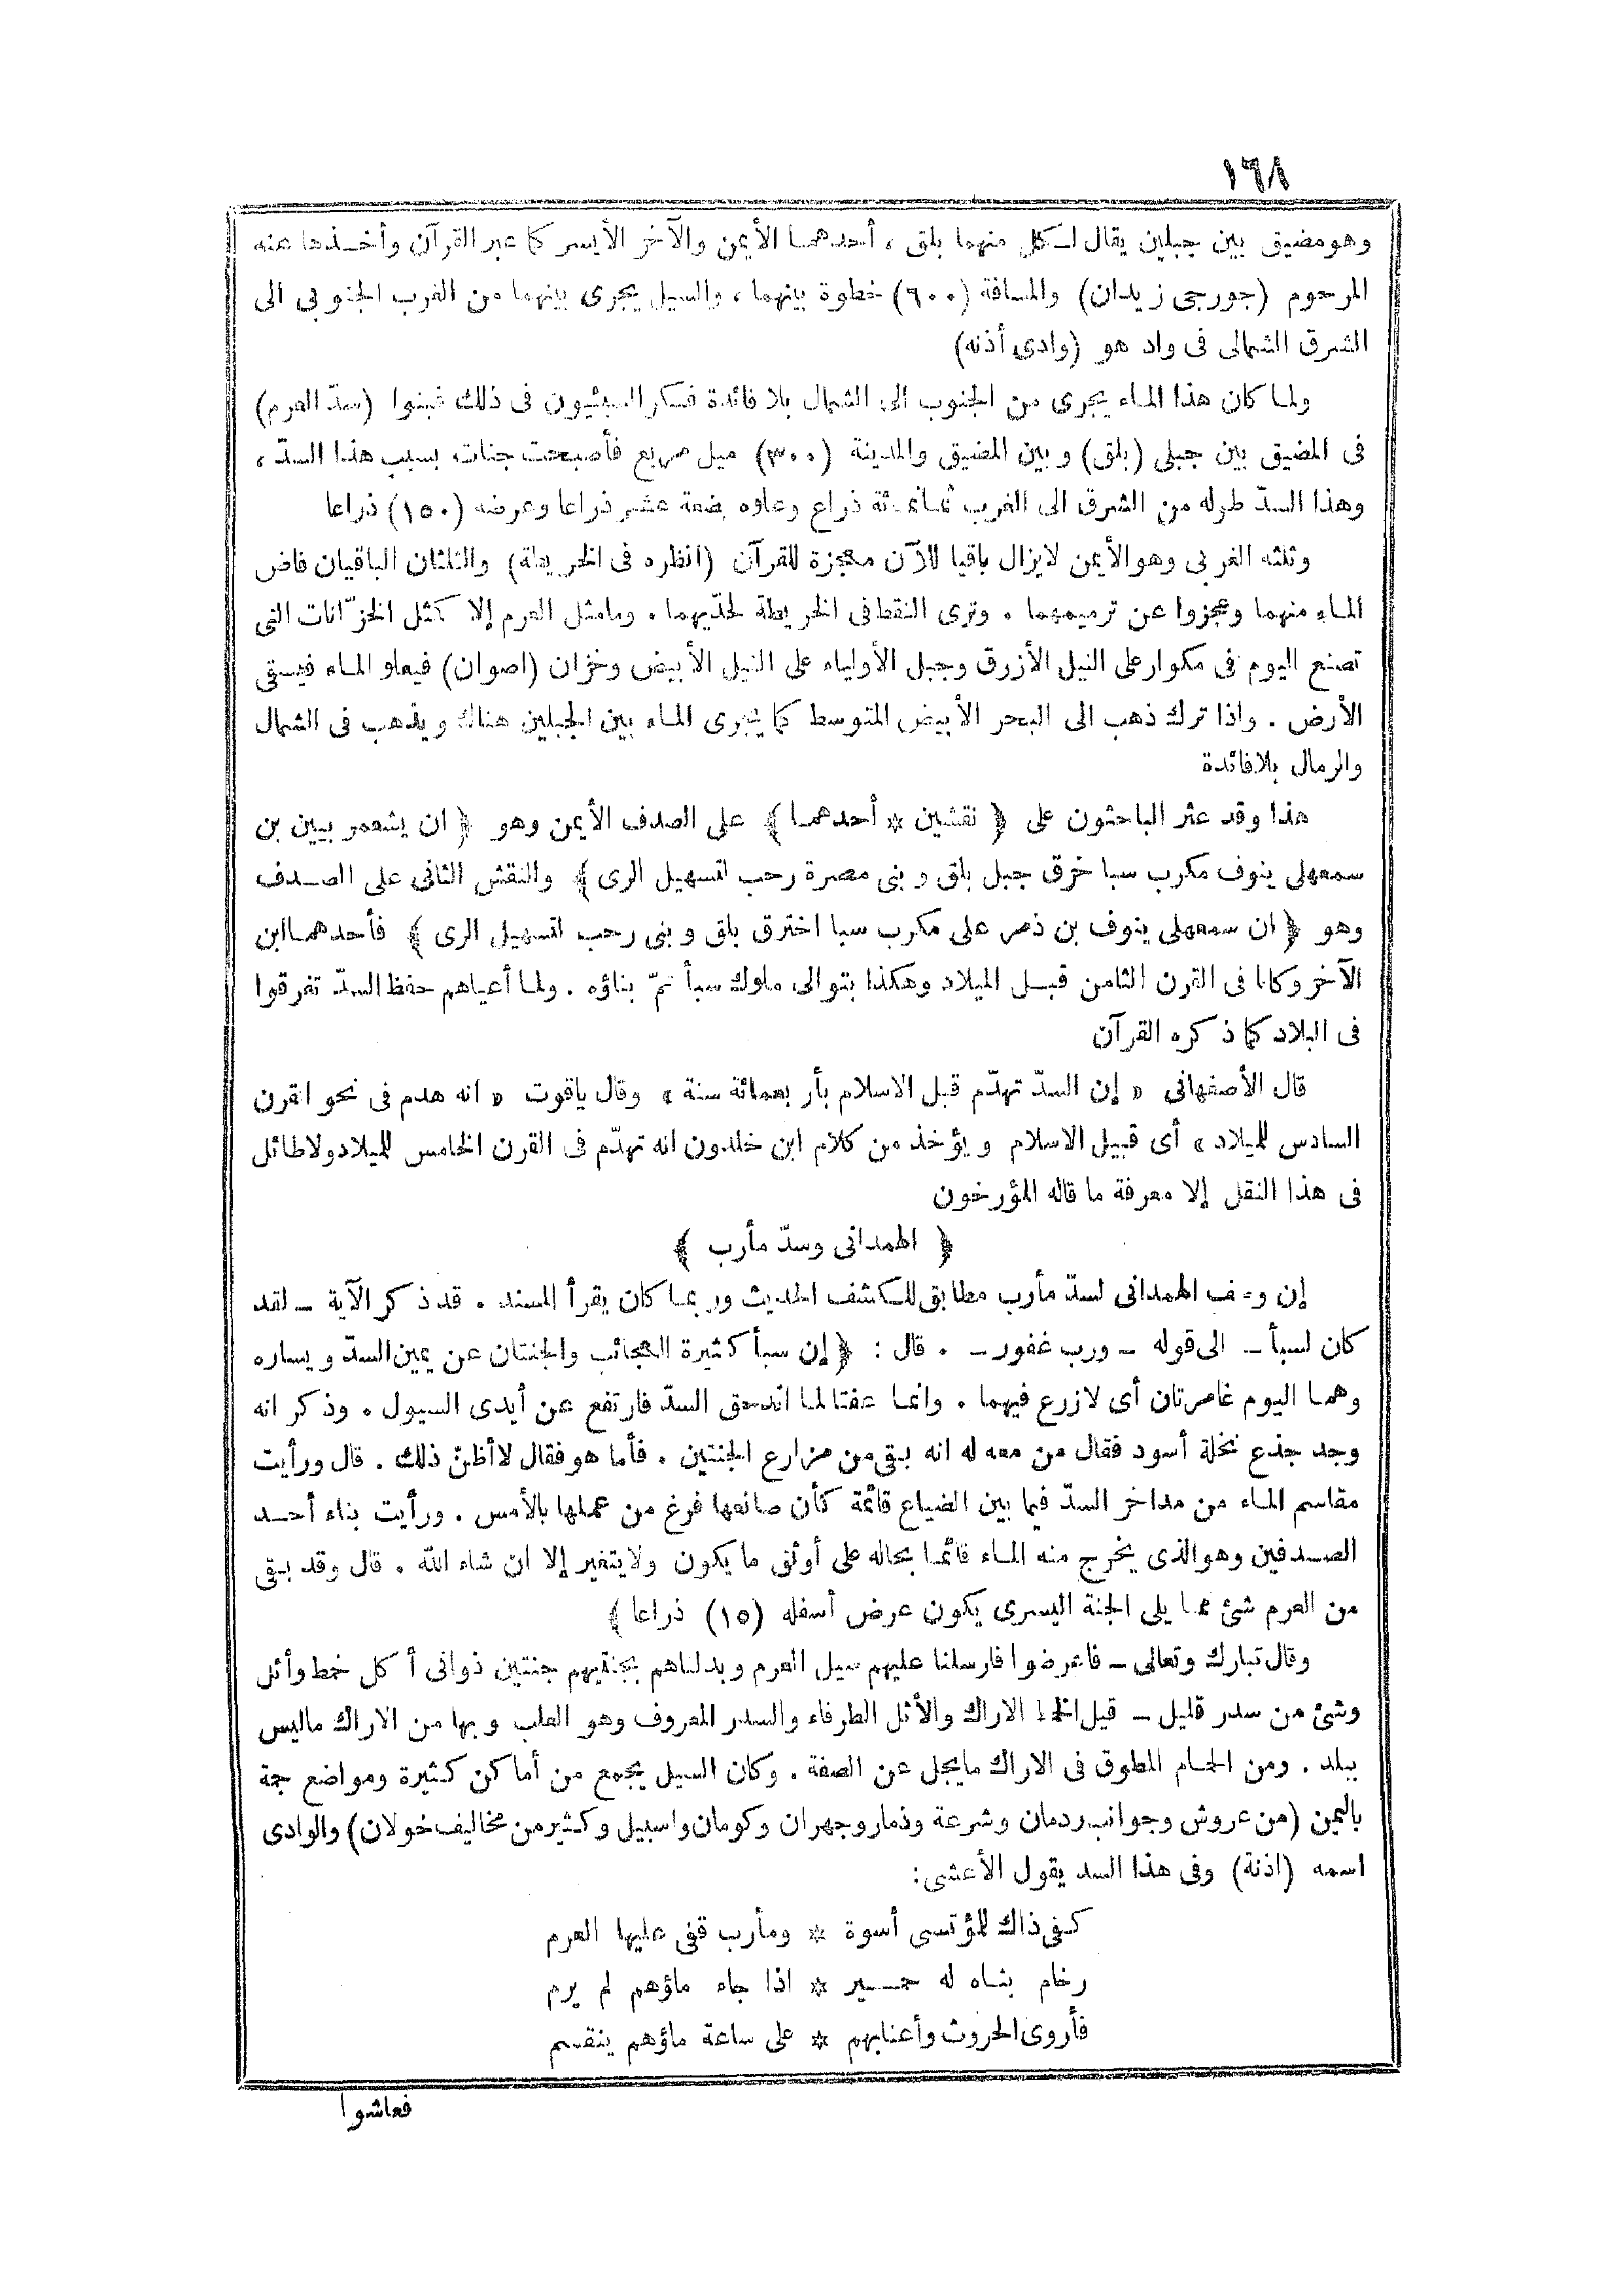 ١٦٨
وهو مضيق بين جبلين يقال لكل منهما بلق ، أحدهما الأيمن والآخر الأيسر كما عبر القرآن وأخذها عنه
المرحوم (جورجى زيدان) والمسافة (٦٠٠) خطوة بينهما ، والسيل يجرى بينهما من الغرب الجنوبى الى
الشرق الشمالى فى واد هو (وادى أذنه)
ولما كان هذا الماء يجرى من الجنوب الى الشمال بلا فائدة فسكر السبئيون فى ذلك فبنوا (سدّ العرم)
فى المضيق بين جبلى (بلق) وبين المضيق والمدينة (٣٠٠) ميل مربع فأصبحت جنات بسبب هذا السدّ ،
وهذا السدّ طوله من الشرق الى الغرب ثمانمائة ذراع وعلوه بضعة عشر ذراعا وعرضه (١٥٠) ذراعا
وثلثه الغربى وهو الأيمن لايزال باقيا للآن معجزة للقرآن (انظره فى الخريطة) والثلثان الباقيان فاض
الماء منهما وعجزوا عن ترميمهما . وترى النقط فى الخريطة لحدّيهما . ومامثل العرم إلا كمثل الخزّانات التى
تصنع اليوم فى مكوار على النيل الأزرق وجبل الأولياء على النيل الأبيض وخزان (اصوان) فيعلو الماء فيسقى
الأرض . واذا ترك ذهب الى البحر الأبيض المتوسط كما يجرى الماء بين الجبلين هناك ويذهب فى الشمال
والرمال بلافائدة
هذا وقد عثر الباحثون على ﴿ نقشين * أحدهما ﴾ على الصدف الأيمن وهو ﴿ ان يشعمر بيين بن
سمعهلى ينوف مكرب سبا خرق جبل بلق وبنى مصرة رحب لتسهيل الرى ﴾ والنقش الثانى على الصدف
وهو ﴿ ان سمعهلى ينوف بن ذمر على مكرب سبا اخترق بلق وبنى رحب لتسهيل الرى ﴾ فأحدهما ابن
الآخر وكانا فى القرن الثامن قبل الميلاد وهكذا بتوالى ملوك سبأ تمّ بناؤه . ولما أعياهم حفظ السدّ تفرقوا
فى البلاد كما ذكره القرآن
قال الأصفهانى « إن السدّ تهدّم قبل الاسلام بأربعمائة سنة » وقال ياقوت « انه هدم فى نحو القرن
السادس للميلاد » أى قبيل الاسلام ويؤخذ من كلام ابن خلدون انه تهدّم فى القرن الخامس للميلاد ولاطائل
فى هذا النقل إلا معرفة ما قاله المؤرخون
﴿ الهمدانى وسدّ مأرب ﴾
إن وصف الهمدانى لسدّ مأرب مطابق للكشف الحديث وربما كان يقرأ المسند . قد ذكر الآية – لقد
كان لسبأ – الى قوله – ورب غفور – . قال : ﴿ إن سبأ كثيرة العجائب والجنتان عن يمين السدّ ويساره
وهما اليوم غامرتان أى لازرع فيهما . وانما عفتا لما اندحق السدّ فارتفع عن أيدى السيول . وذكر انه
وجد جذع نخلة أسود فقال من معه له انه بقى من مزارع الجنتين . فأما هو فقال لاأظنّ ذلك . قال ورأيت
مقاسم الماء من مداخر السدّ فيما بين الضياع قائمة كأن صانعها فرغ من عملها بالأمس . ورأيت بناء أحد
الصدفين وهو الذى يخرج منه الماء قائما بحاله على أوثق ما يكون ولايتغير إلا ان شاء الله . قال وقد بقى
من العرم شئ مما يلى الجنة اليسرى يكون عرض أسفله (١٥) ذراعا ﴾
وقال تبارك وتعالى – فاعرضوا فارسلنا عليهم سيل العرم وبدلناهم بجنتيهم جنتين ذواتى أكل خمط وأثل
وشئ من سدر قليل – قيل الخمط الاراك والأثل الطرفاء والسدر المعروف وهو العلب وبها من الاراك ماليس
ببلد . ومن الحمام المطوق فى الاراك مايجل عن الصفة . وكان السيل يجمع من أماكن كثيرة ومواضع جمة
باليمن (من عروش وجوانب ردمان وشرعة وذمار وجهران وكومان واسبيل وكثير من مخاليف خولان) والوادى
اسمه (اذنة) وفى هذا السد يقول الأعشى :
كفى ذاك للمؤتسى أسوة * ومأرب قفى عليها العرم
رخام بناه له حمير * اذا جاء ماؤهم لم يرم
فأروى الحروث وأعنابهم * على ساعة ماؤهم ينقسم
فعاشوا